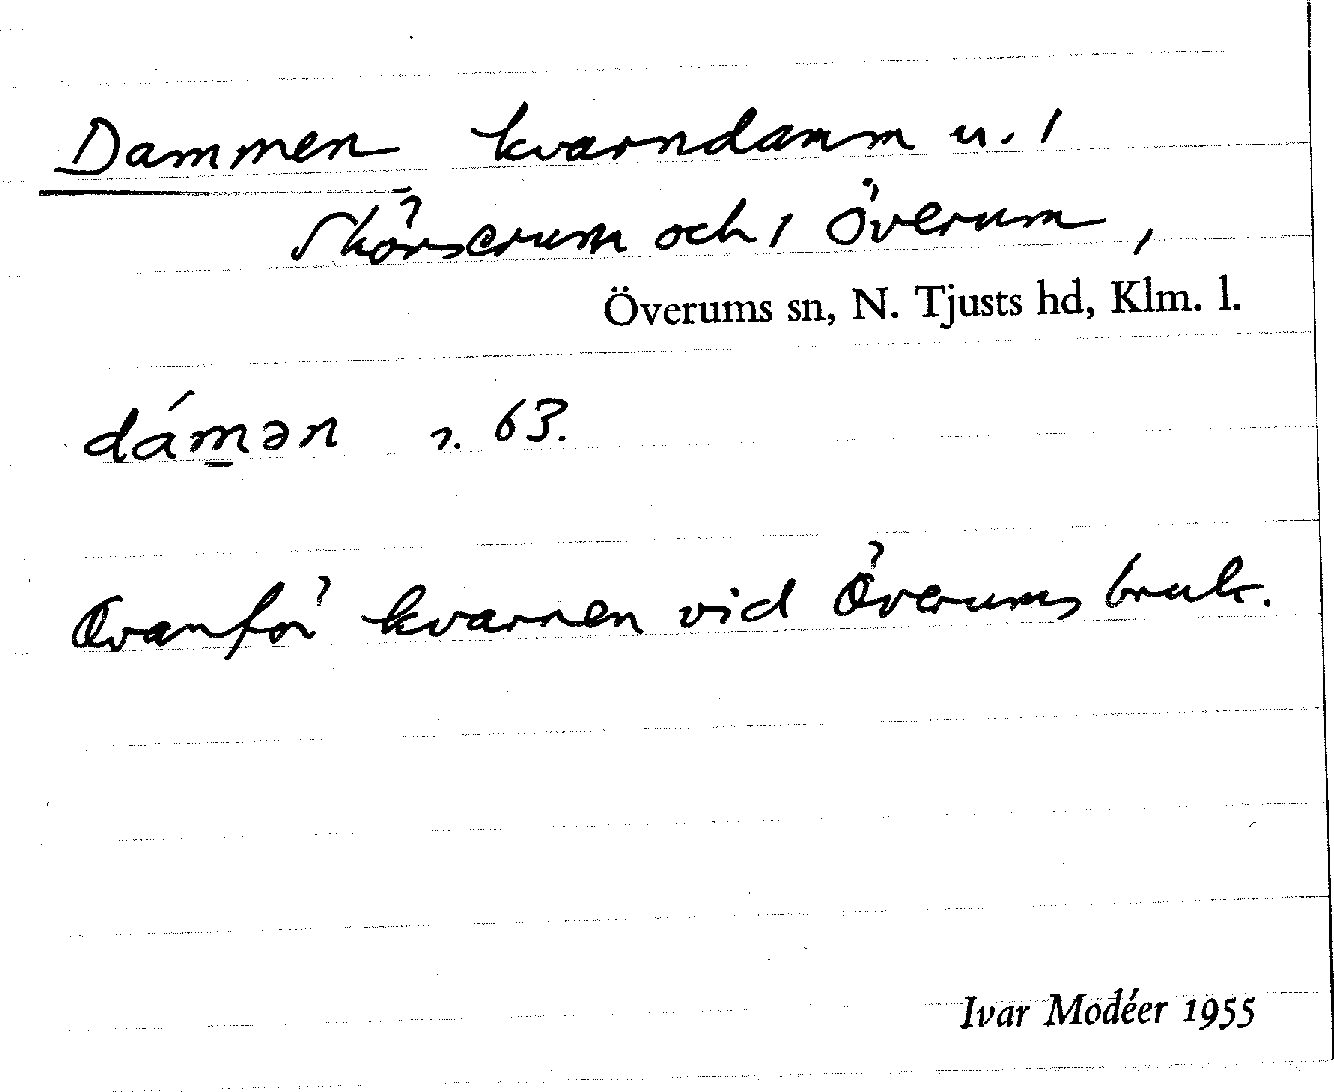 Dammen kvarndamm u. 1
Skörserum och 1 Överum,
Överums sn, N. Tjusts hd, Klm. l.
dám̲ən r. 63.
Ovanför kvarnen vid Överums bruk.
Ivar Modéer 1955